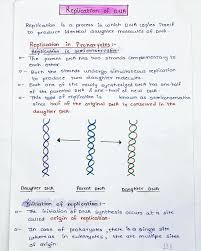 Replication of DNA
Replication is a process in which DNA copies itself
to produce identical daughter molecules of DNA.
Replication in Prokaryotes:-
Replication is semiconservative
The parent DNA has two strands complementary to
each other.
Both the strands undergo simultaneous replication
to produce two daughter molecules.
Each one of the newly synthesized DNA has one-half
of the parental DNA & one-half of new DNA.
This type of replication is known as semiconservative
since half of the original DNA is conserved in the
daughter DNA.
Daughter DNA Parent DNA Daughter DNA
Initiation of replication:-
The initiation of DNA synthesis occurs at a site
called origin of replication.
In case of prokaryotes, there is a single site
whereas in eukaryotes, there are multiple sites
of origin.